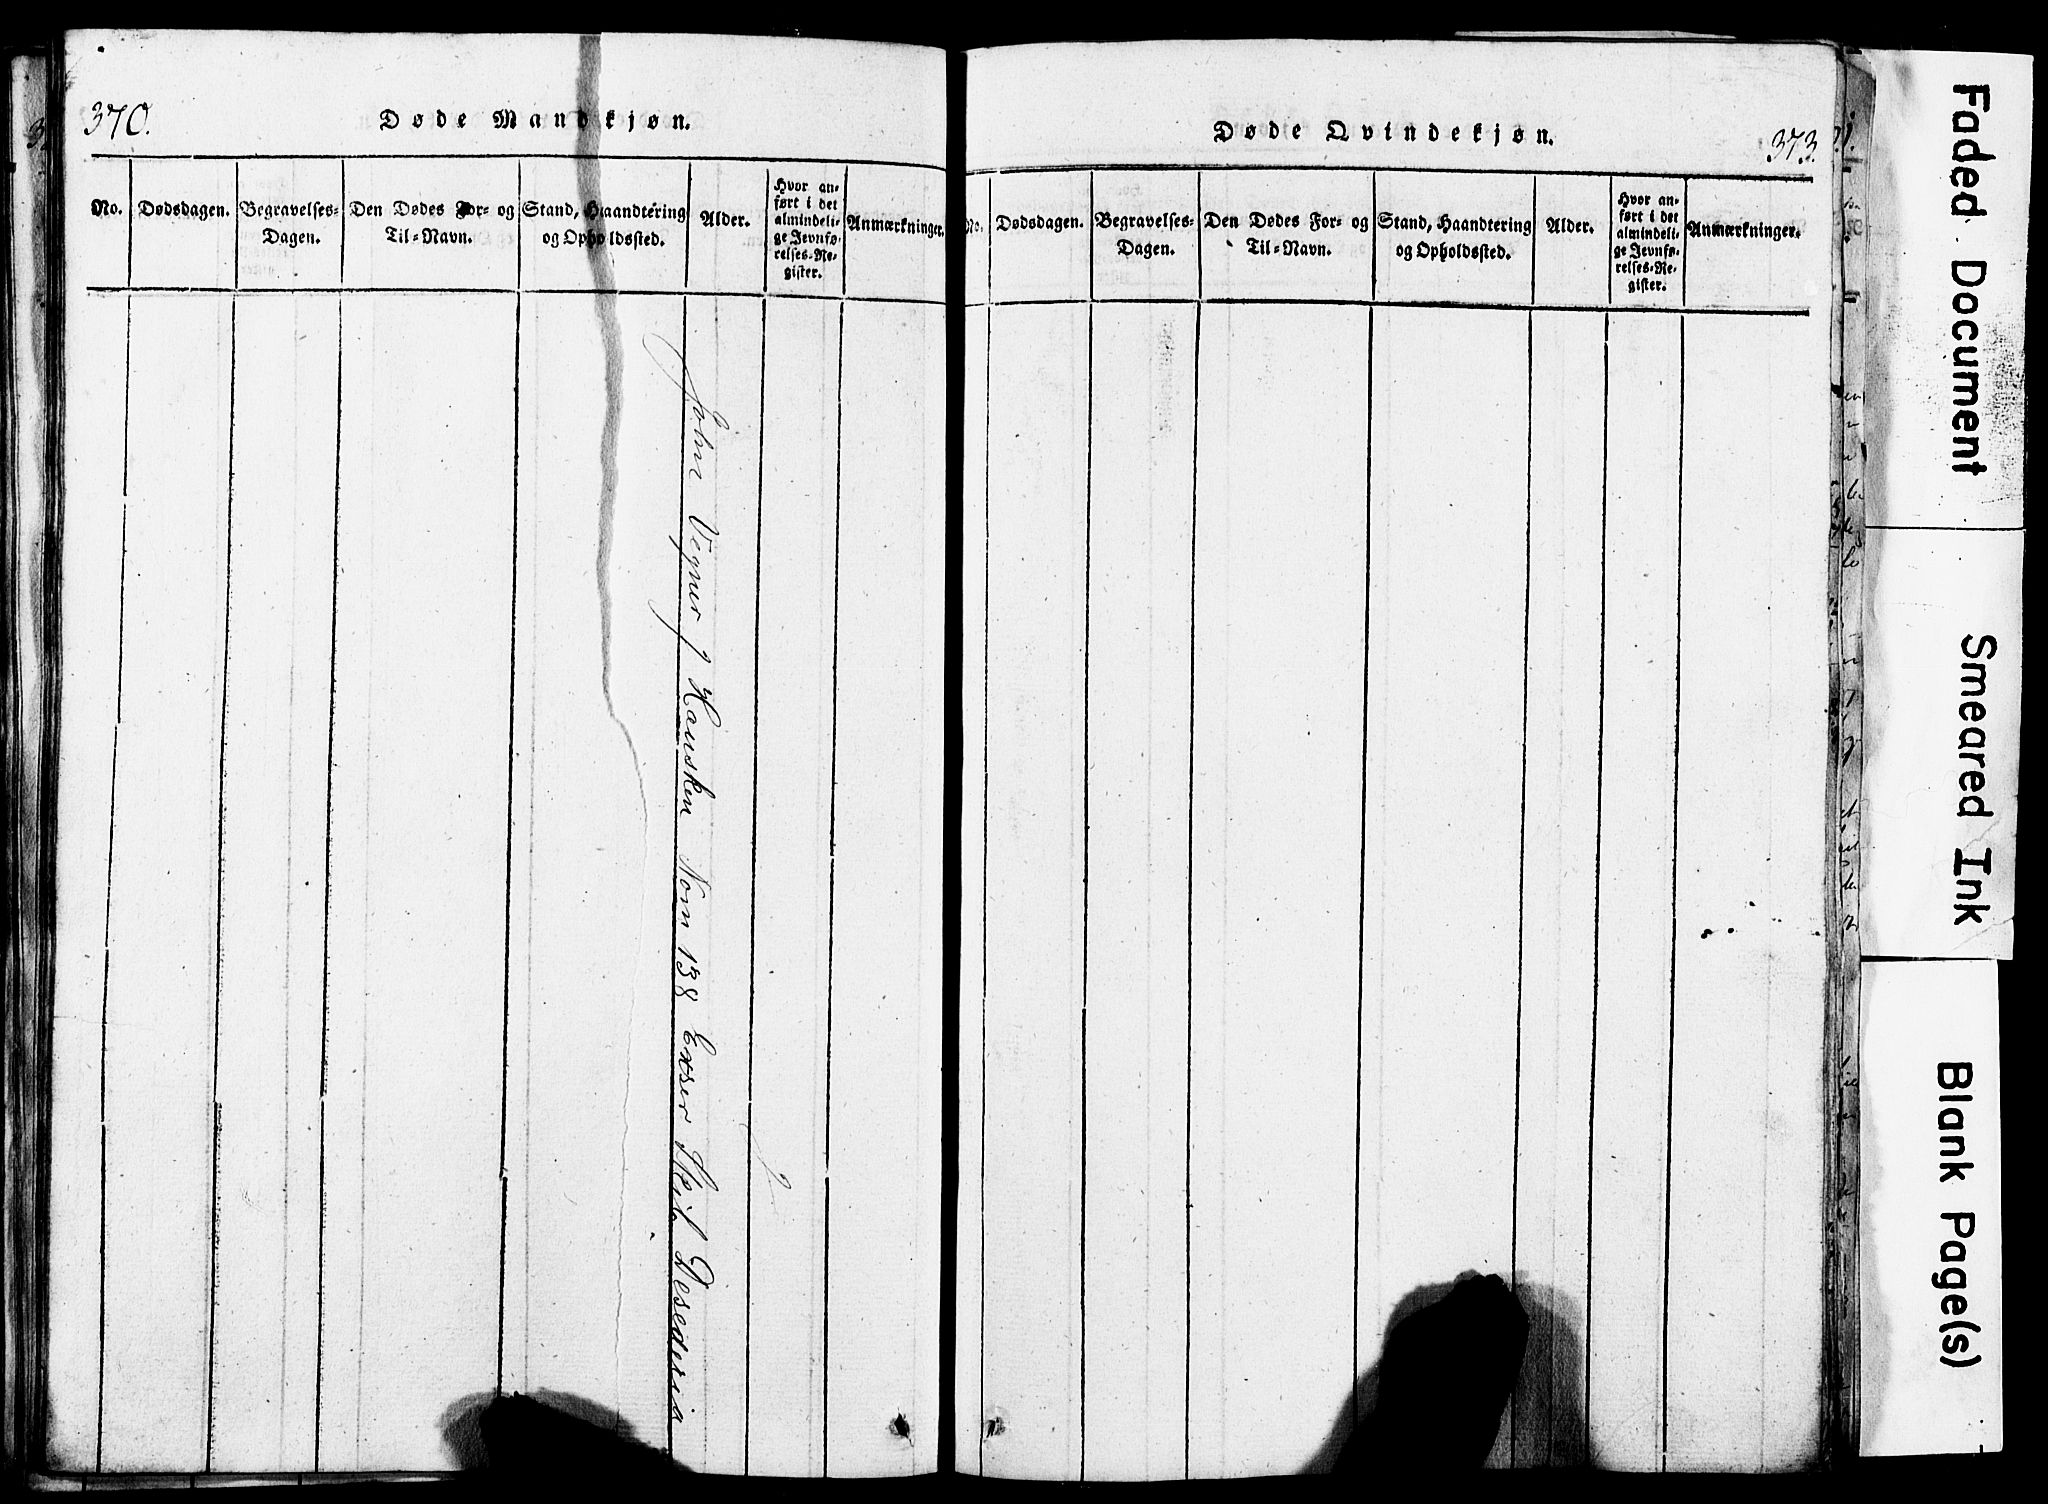 370.
Døde Mandkjøn.
No.
Dødsdagen.
Begravelses-
Dagen.
Den Dødes For- og
Til-Navn.
Stand, Haandtering
og Opholdssted.
Alder.
Hvor an-
ført i det
almindeli-
ge Jevnfø-
relses-Re-
gister.
Anmærkninger.
John Vegner J Hausken Nom 138 Exser Skib Desederia
Døde Qvindekjøn.
373.
No.
Dødsdagen.
Begravelses-
Dagen.
Den Dødes For- og
Til-Navn.
Stand, Haandtering
og Opholdssted.
Alder.
Hvor an-
ført i det
almindeli-
ge Jevnfø-
relses-Re-
gister.
Anmærkninger.
Faded Document
Smeared Ink
Blank Page(s)